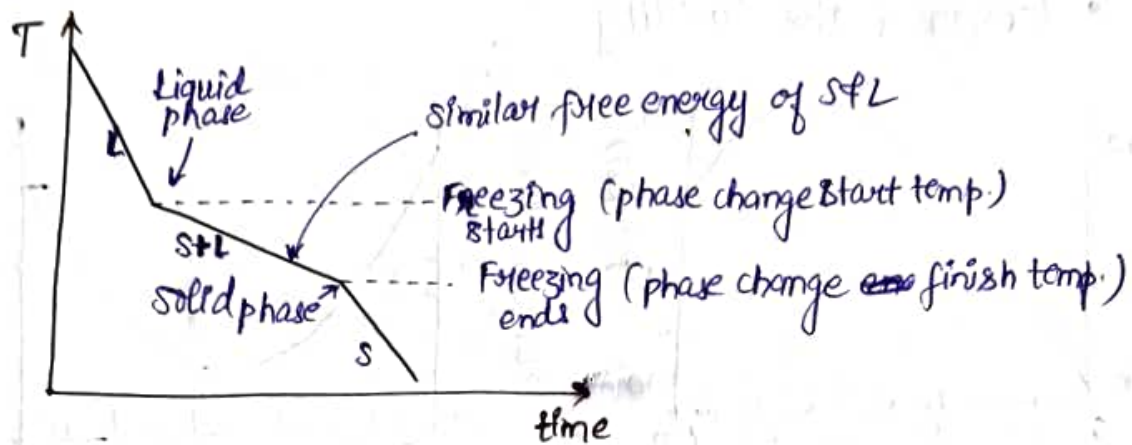 T
Liquid
phase
L
Similar free energy of S&L
Freezing (phase change start temp.)
starts
S+L
Solid phase
Freezing (phase change finish temp.)
ends
S
time